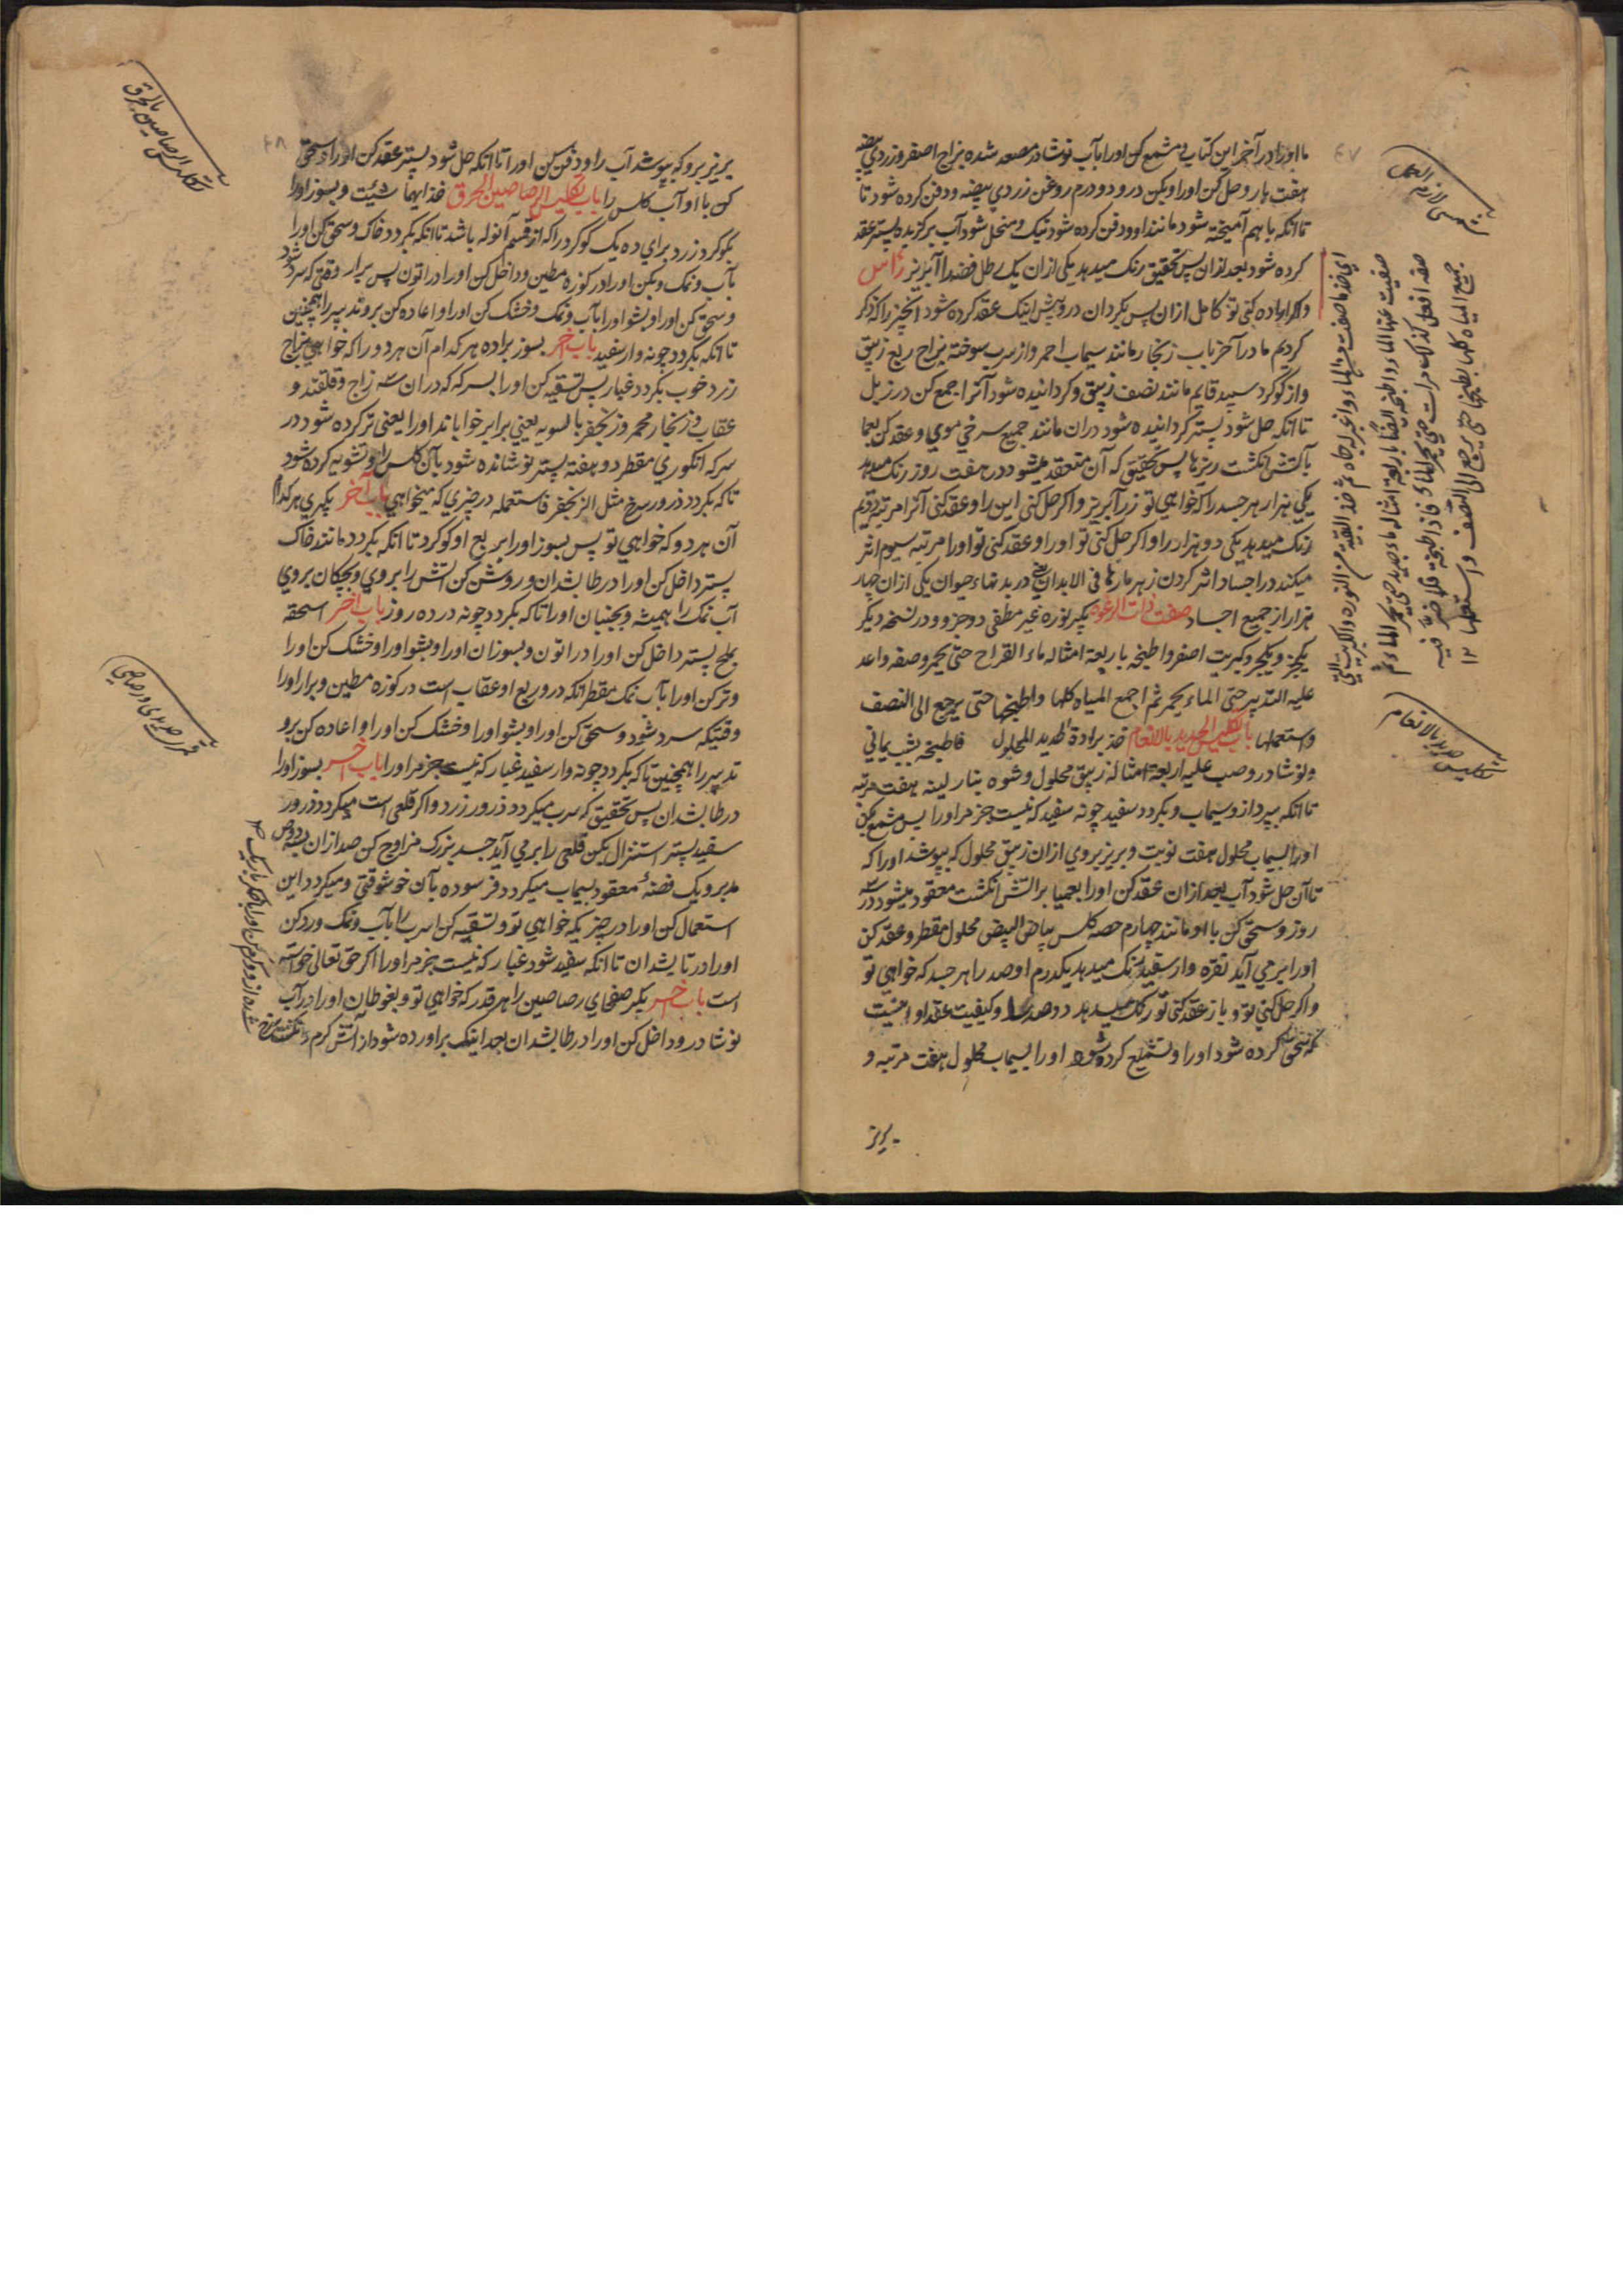 ما اورا در آخر این کتاب و مشمع کن اورا بآب نوشادر مصعد شده بزاج اصفر و زردی بیضه
هفت بار و حل کن اورا و بکن درو دو درم روغن زردی بیضه و دفن کرده شود تا
تا انکه باهم آمیخته شود مانند او و دفن کرده شود نیک و منحل شود آب برگزیده پستر عقد
کرده شود بعد ازان پس تحقیق رنک میدهد یکی ازان یک رطل فضه را آبریز راس
و اگر اراده کنی تو کامل ازان پس بگردان درو پیش اینک عقد کرده شود انچیز را که ذکر
کردیم ما در آخر باب زنجار مانند سیماب احمر و از سرب سوخته بزاج ربع زیبق
و از کوکرد سپید قایم مانند نصف زیبق و کردانیده شود آنرا جمع کن در زبل
تا انکه حل شود پستر کردانیده شود دران مانند جمیع سرخی موی و عقد کن بعما
بآتش انکشت ریزها پس تحقیق که آن منعقد میشود در هفت روز رنک میدهد
یکی هزار هر جسد را که خواهی تو زر آبریز و اگر حل کنی این را و عقد کنی آنرا مرتبه دویم
رنک میدهد یکی دو هزار را و اگر حل کنی تو اورا و عقد کنی تو اورا مرتبه سیوم اثر
میکند در اجساد اثر کردن زهر مارها فی الابدان در بدنهاء حیوان یکی ازان چهار
هزار از جمیع اجساد صفت ذات الرغوه بکیر نوره غیر مطفی دو جزو و در نسخه دیگر
یکجز و یکجزو کبریت اصفر واطبخه باربعة امثاله ماء القراح حتی یحمر وصفه واعد
علیه التدبیر حتی الماء یحمر ثم اجمع المیاه کلها واطبخها حتی یرجع الی النصف
واستعملها باب تکلیس الحدید بالالغام خذ برادة الحدید المحلول فاطبخه بشب یمانی
ونوشادر وصب علیه اربعة امثاله زیبق محلول وشوه بنار لینه هفت مرتبه
تا انکه بپرد ازو سیماب و بگردد سفید چونه سفید که نیست جزم اورا پس مشمع بکن
اورا بسیماب محلول هفت نوبت و بریز بروی ازان زیبق محلول که بپوشد اورا که
تا آن حل شود آب بعد ازان عقد کن اورا بعمیا بر آتش انکشت معقود میشود در سه
روز و سحق کن با او مانند چهارم حصه کلس بیاض البیض محلول مقطر و عقد کن
اورا برمی آید نقره وار سفید رنک میدهد یکدرم او صد را هر جسد که خواهی تو
و اگر حل کنی تو و باز عقد کنی تو رنک میدهد دو صد را و کیفیت عقد او اینست
که سحق کرده شود اورا و تشمیع کرده شود اورا بسیماب محلول هفت مرتبه و
بریز
تکلیس حدید بالالغام
بریز برو که بپوشد آب را و دفن کن اورا تا انکه حل شود پستر عقد کن اورا و سحق
کن با او آب کلس را باب تکلیس الرصاصین بالحرق خذ ایهما شئت و بسوز اورا
بکوکرد زرد برای ده یک کوکرد را که از قسم آنوله باشد تا انکه بگردد خاک و سحق کن اورا
بآب و نمک و بکن اورا در کوزه مطین و داخل کن اورا در اتون پس برار وقتی که سرد شود
و سحق کن اورا و بشو اورا بآب و نمک و خشک کن اورا و اعاده کن برو تدبیر را همچنین
تا انکه بگردد چونه وار سفید باب آخر بسوز براده هر کدام آن هر دو را که خواهی بزاج
زرد خوب بگردد غبار پس تسقیه کن اورا بسرکه که دران سه زاج و قلقند و
عقاب و زنجار محمر و زنجفر بالسویه یعنی برابر خواباند اورا یعنی تر کرده شود در
سرکه انکوری مقطر دو هفته پستر نوشانده شود بآن کلس را و تشویه کرده شود
تا که بگردد ذرور سرخ مثل الزنجفر فاستعمله در چیزی که میخواهی باب آخر بکیری هر کدام
آن هر دو که خواهی تو پس بسوز اورا بربع او کوکرد تا انکه بگردد مانند خاک
پستر داخل کن اورا در طابشدان و روشن کن آتش را بروی و بچکان بروی
آب نمک را همیشه و بجنبان اورا تا که بگردد چونه در ده روز باب آخر اسحقه
بملح پستر داخل کن اورا در اتون و بسوزان اورا و بشو اورا و خشک کن اورا
و تر کن اورا بآب نمک مقطر انکه در و ربع او عقاب است در کوزه مطین و برار اورا
وقتیکه سرد شود و سحق کن اورا و بشو اورا و خشک کن اورا و اعاده کن برو
تدبیر را همچنین تا که بگردد چونه وار سفید غبار که نیست جزم اورا باب آخر بسوز اورا
در طابشدان پس تحقیق که سرب میگردد ذرور زرد و اگر قلعی است میگردد ذرور
سفید پستر استنزال بکن قلعی را برمی آید جسد بزرک مزاوج کن صد ازان
مدبر و یک فضهٔ معقود بسیماب میگردد فرسوده بآن خوشوقتی و میگردد این
استعمال کن اورا در چیزیکه خواهی تو و تسقیه کن اسرب را بآب و نمک و رد کن
اورا در تابشدان تا انکه سفید شود غبار که نیست جزم اورا اگر حق تعالی خواسته
است باب آخر بکیر صفحای رصاصین را هر قدر که خواهی تو و بغوطان اورا در آب
نوشادر و داخل کن اورا در طابشدان بعد اینک براورده شود از آتش کرم
تکلیس الرصاصین بالحرق